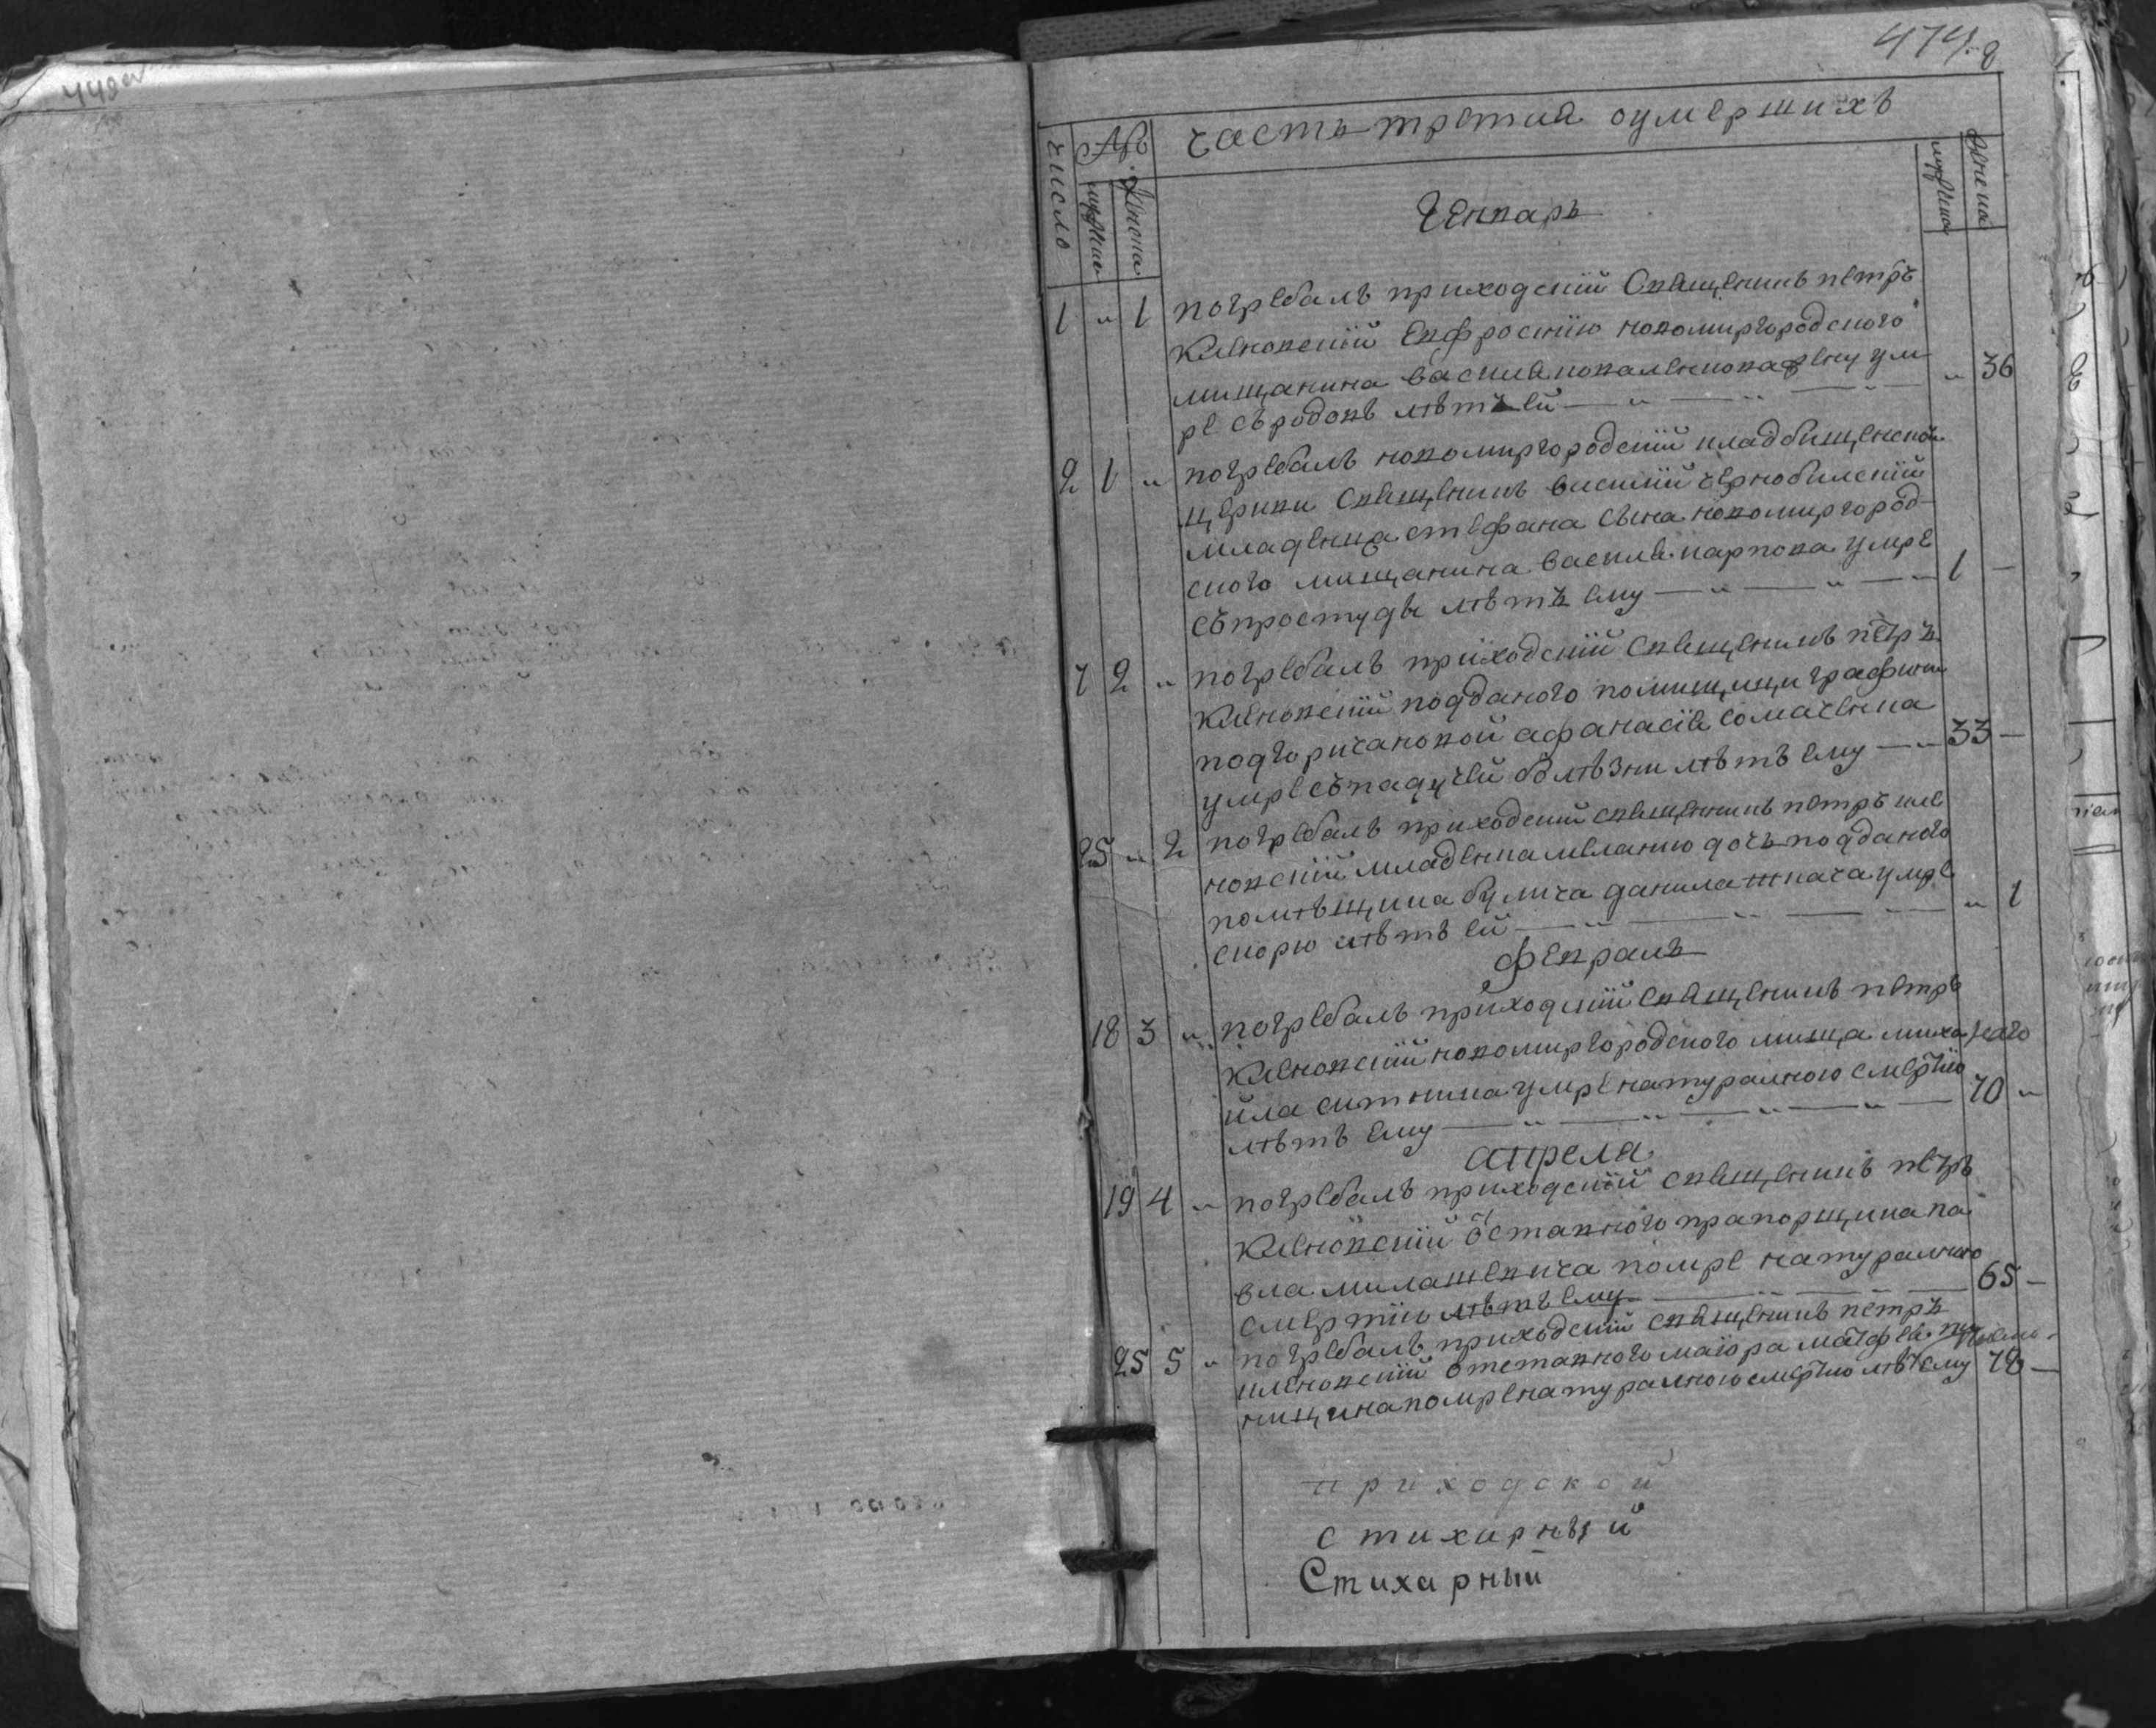 474
8
часть третия оумершихъ
число
№
мужеска
Женска
мужеска
Женска
Генварь
1 " 1 погребалъ приходскій Священикъ петръ
Клѣновскій Евфросинію новомиргородского
мищанина василя коваленнова жену ум
ре съ родовъ лѣтъ ей — " — " — " — " 36
2 1 " погребалъ новомиргородскій кладбищенской
церкви Священикъ василій чернобилскій
младенца стефана сына новомиргород
ского мищанина василя карпова умре
съ простуды лѣтъ ему — " — " — — 1 —
7 2 " погребалъ приходскій Священикъ петръ
Клѣновскій подданого помищици графини
подгоричановой афанасія
умре съ падучей болѣзни лѣтъ ему — " 33 —
25 " 2 погребалъ приходский священникъ петръ кле
новский младенца меланию дочь подданого
помѣщика булича данила ткача умре
скорю лѣтъ ей — " — " — — " 1
февраль
18 3 " погребалъ приходский Священикъ петръ
Клѣновскій новомиргородского мища миха
йла ситника умре натуралною смертию
лѣтъ ему — " — " — " — " — 70 "
апреля
19 4 " погребалъ приходский священикъ петръ
Клѣновский отставного прапорщика па
вла милашевича помре натуралною
смертию лѣтъ ему — — — 65 —
25 5 " погребалъ приходский священикъ петръ
кленовский отставного маіора матфея
помре натуралною смертию лѣтъ ему 78 —
приходской
стихарный
Стихарный